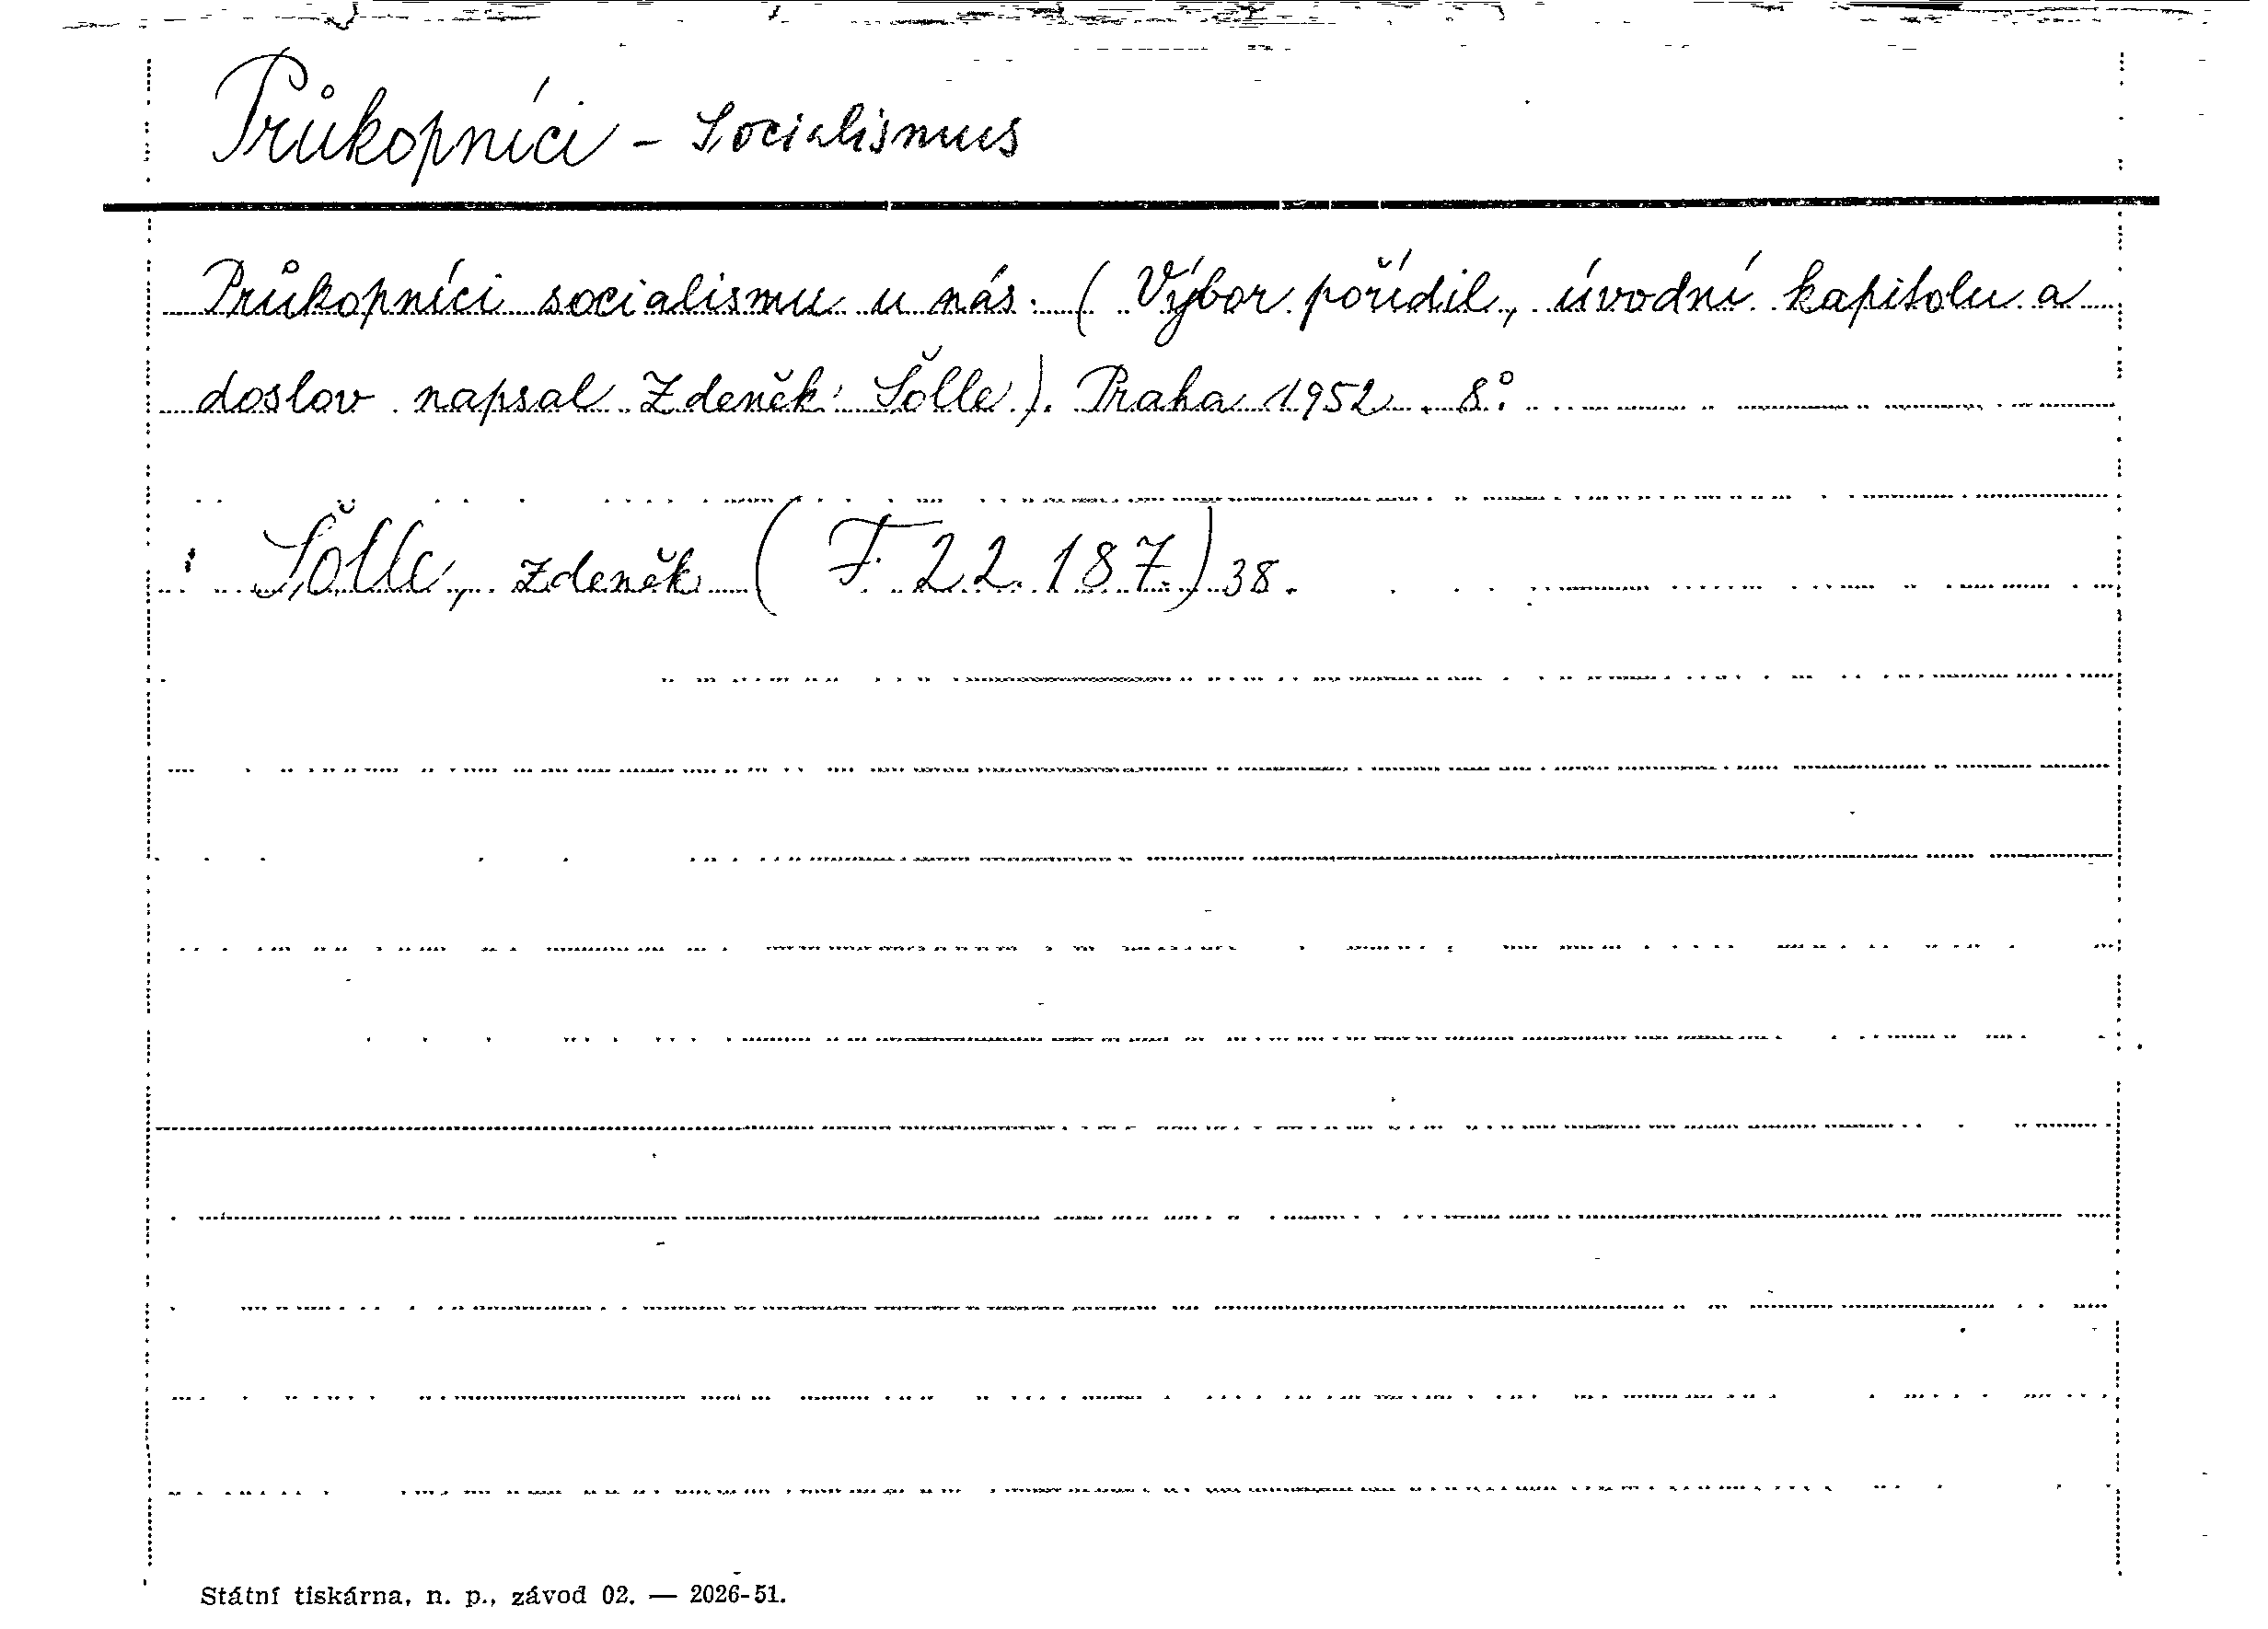 Průkopníci - Socialismus
Průkopníci socialismu u nás. ( Výbor pořídil, úvodní kapitolu a
doslov napsal Zdeněk Šolle). Praha 1952. 8°
Šolle, Zdeněk ( F. 22.187.) 38.
Státní tiskárna, n. p., závod 02. — 2026-51.